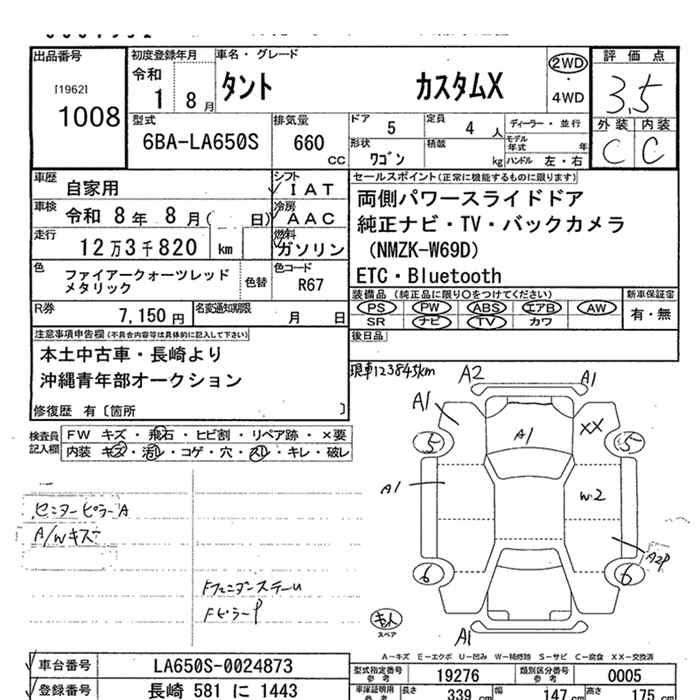 出品番号
[1962]
1008
初度登録年月
令和
1 8月
車名・グレード
タント カスタムX
2WD
4WD
評価点
3.5
外装 内装
C C
型式
6BA-LA650S
排気量
660
cc
ドア
5
定員
4 人
ディーラー・並行
形状
ワゴン
積載
kg
モデル年式 年
ハンドル 左・右
車歴
自家用
シフト
I A T
車検
令和 8年 8月( 日)
冷房
A A C
走行
12万3千820 km
燃料
ガソリン
色
ファイアークォーツレッド
メタリック
色替
色コード
R67
R券
7,150 円
名変通知期限
月 日
セールスポイント(正常に機能するものに限ります)
両側パワースライドドア
純正ナビ・TV・バックカメラ
(NMZK-W69D)
ETC・Bluetooth
装備品 (純正品に限り○をつけてください)
PS PW ABS エアB AW
SR ナビ TV カワ
新車保証書
有・無
後日品
注意事項申告欄(不具合内容等は具体的に記入して下さい)
本土中古車・長崎より
沖縄青年部オークション
修復歴 有〔箇所 〕
検査員
記入欄
FW キズ・飛石・ヒビ割・リペア跡・×要
内装 キズ・汚レ・コゲ・穴・スレ・キレ・破レ
現車123845km
A2
A1
A1
A1
XX
5
5
A1
W-2
A2P
6
6
A1
スペア
センターピラーA
A/Wキズ
Fピラー P
A-キズ E-エクボ U-凹み W-補修跡 S-サビ C-腐食 XX-交換済
車台番号
LA650S-0024873
登録番号
長崎 581 に 1443
型式指定番号
参考
19276
類別区分番号
参考
0005
車庫証明用
参考
長さ
339 cm
幅
147 cm
高さ
175 cm